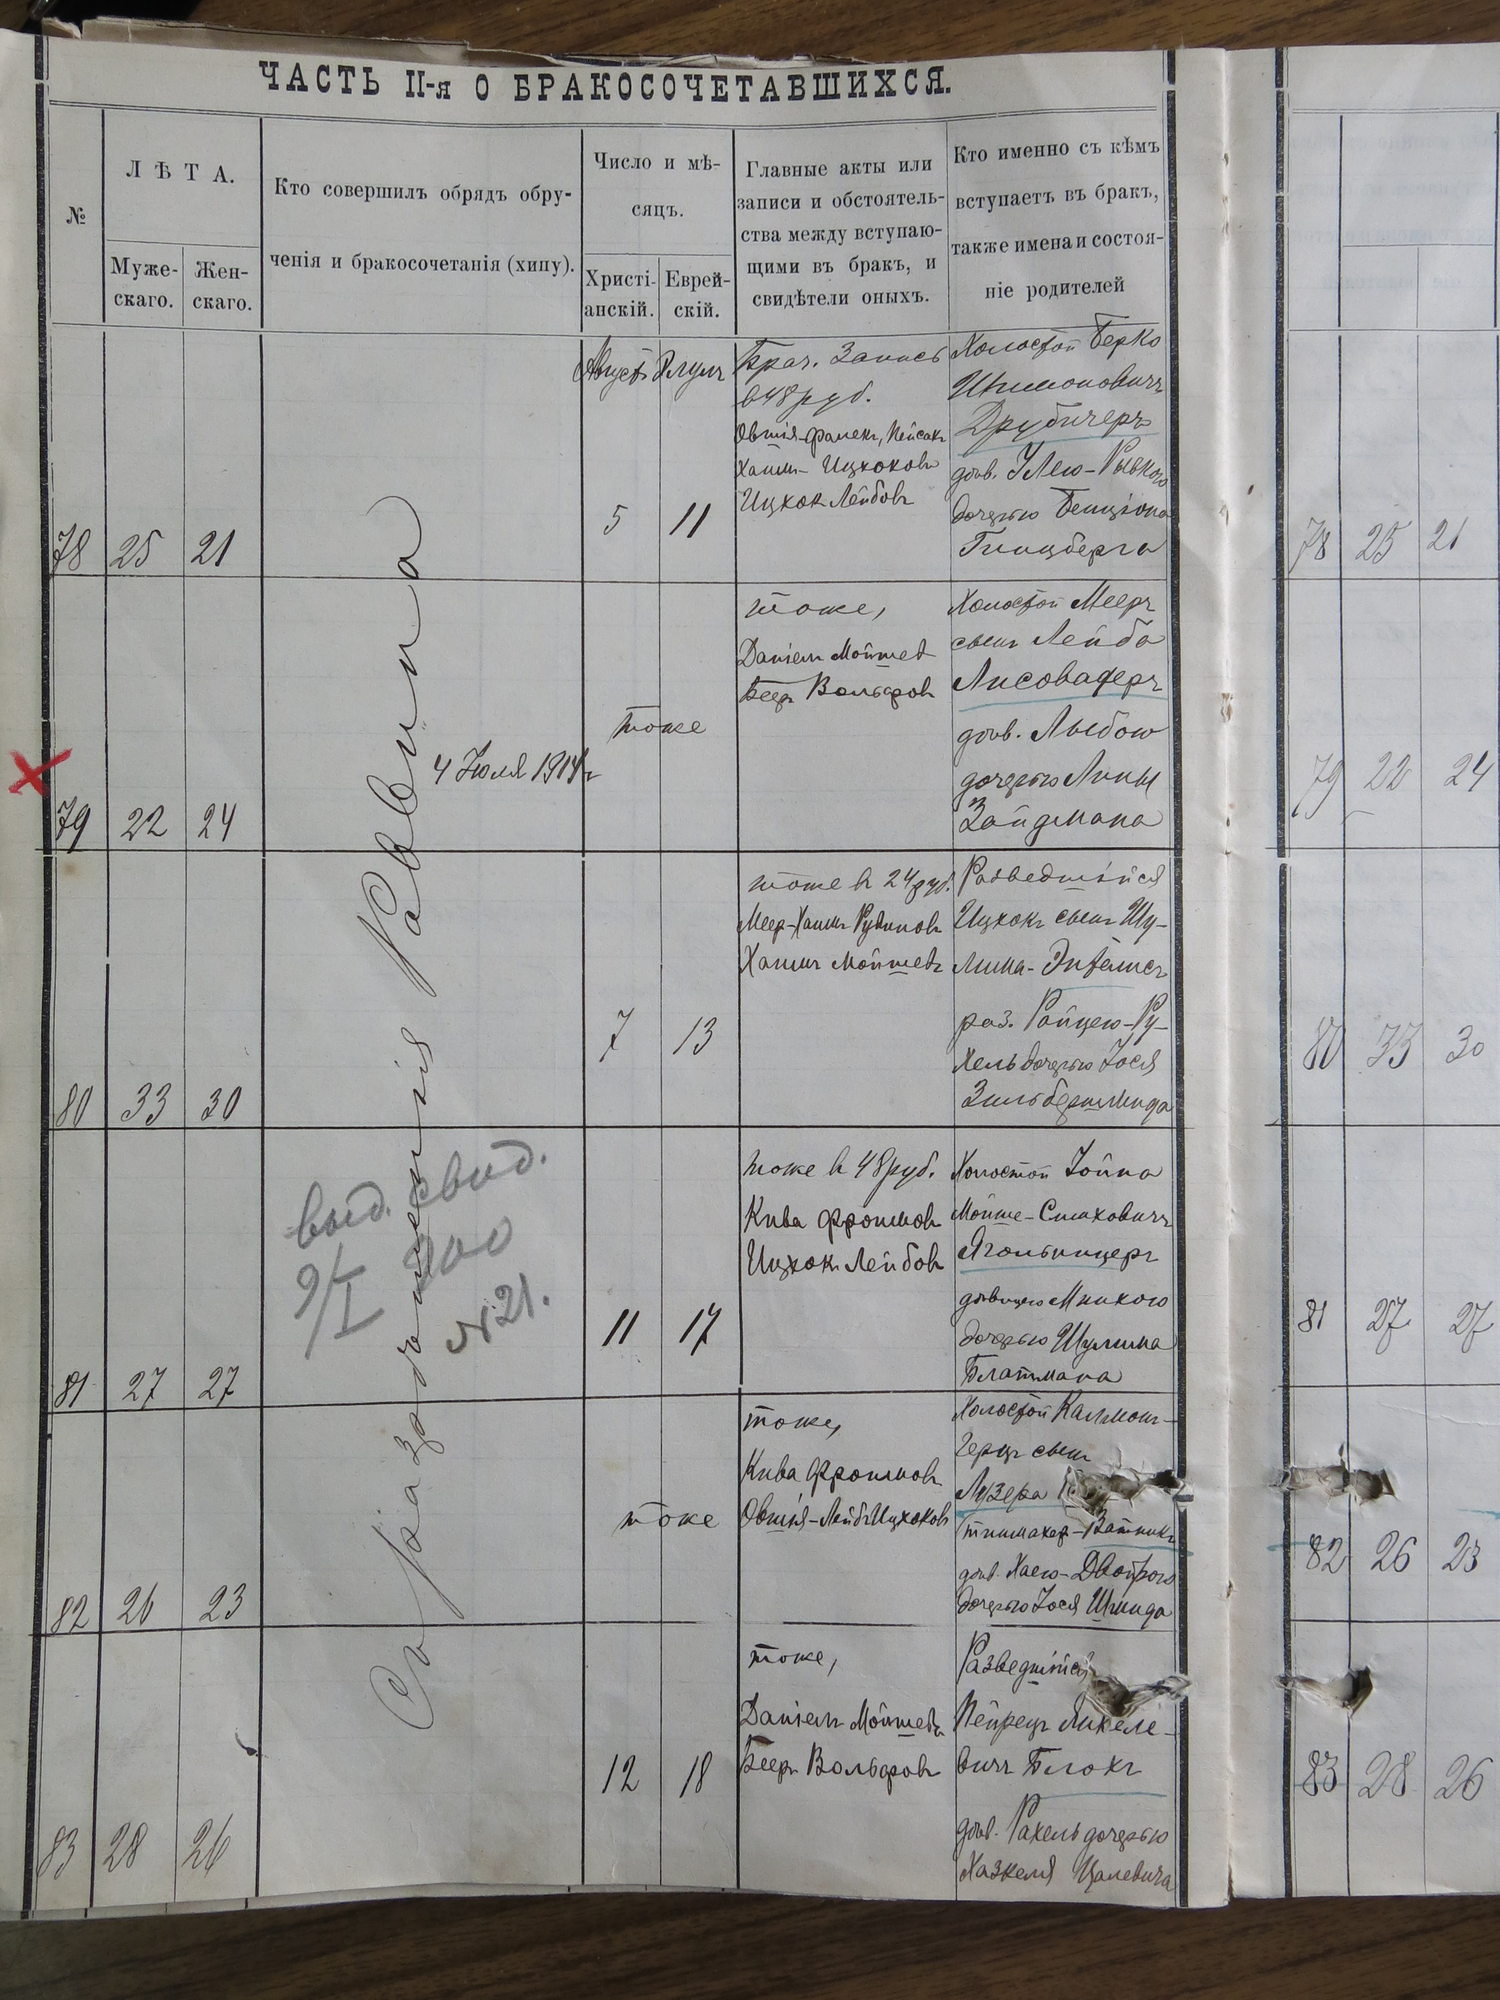 ЧАСТЬ II-я О БРАКОСОЧЕТАВШИХСЯ.
№
ЛѢТА.
Муже-
скаго.
Жен-
скаго.
Кто совершилъ обрядъ обру-
ченія и бракосочетанія (хипу).
Число и мѣ-
сяцъ.
Христі-
анскій.
Еврей-
скій.
Главные акты или
записи и обстоятель-
ства между вступаю-
щими въ бракъ, и
свидѣтели оныхъ.
Кто именно съ кѣмъ
вступаетъ въ бракъ,
также имена и состоя-
ніе родителей
Августъ Элулъ
78 25 21
5 11
Брач. Запись
въ 48 руб.
Овшія-Фалекъ, Пейсахъ
Хаимъ-Ицхоковъ
Ицхокъ Лейбовъ
Холостой Берко
Шимоновичъ
Друбичеръ
дѣв. Улею-Рывкою
дочерью Бенціона
Гинцберга
79 22 24
4 Июля 1914 г
тоже
тоже,
Даніель Мойшевъ
Бееръ Вольфовъ
Холостой Мееръ
сынъ Лейба
Лисоваферъ
дѣв. Лыбою
дочерью Липы
Зайдмана
80 33 30
7 13
тоже въ 24 руб.
Меер-Хаимъ Рувиновъ
Хаимъ Мойшевъ
Разведшійся
Ицхокъ сынъ Шу-
лима-Энтелисъ
раз. Райцею-Ру-
хель дочерью Іося
Зильбершмида
81 27 27
выд. свид.
9/I 900
№ 21.
11 17
тоже въ 48 руб.
Кива Фроимовъ
Ицхокъ Лейбовъ
Холостой Іойна
Мойше-Симховичъ
Ягольницеръ
дѣвицею Мнихою
дочерью Шулима
Блатмана
82 26 23
тоже
тоже,
Кива Фроимовъ
Овшія-Лейбъ Ицхоковъ
Холостой Калмонъ-
Герцъ сынъ
Лузера
тимахер-Ватникъ
дѣв. Хаею-Двойрою
дочерью Іося Шмида
83 28 26
12 18
тоже,
Даніель Мойшевъ
Беер Вольфовъ
Разведшійся
Пейрецъ Михеле-
вичъ Блохъ
дѣв. Рахель дочерью
Хазкеля Цалевича
Съ разрѣшенія Раввина
78 25 21
79 22 24
80 33 30
81 27 27
82 26 23
83 28 26